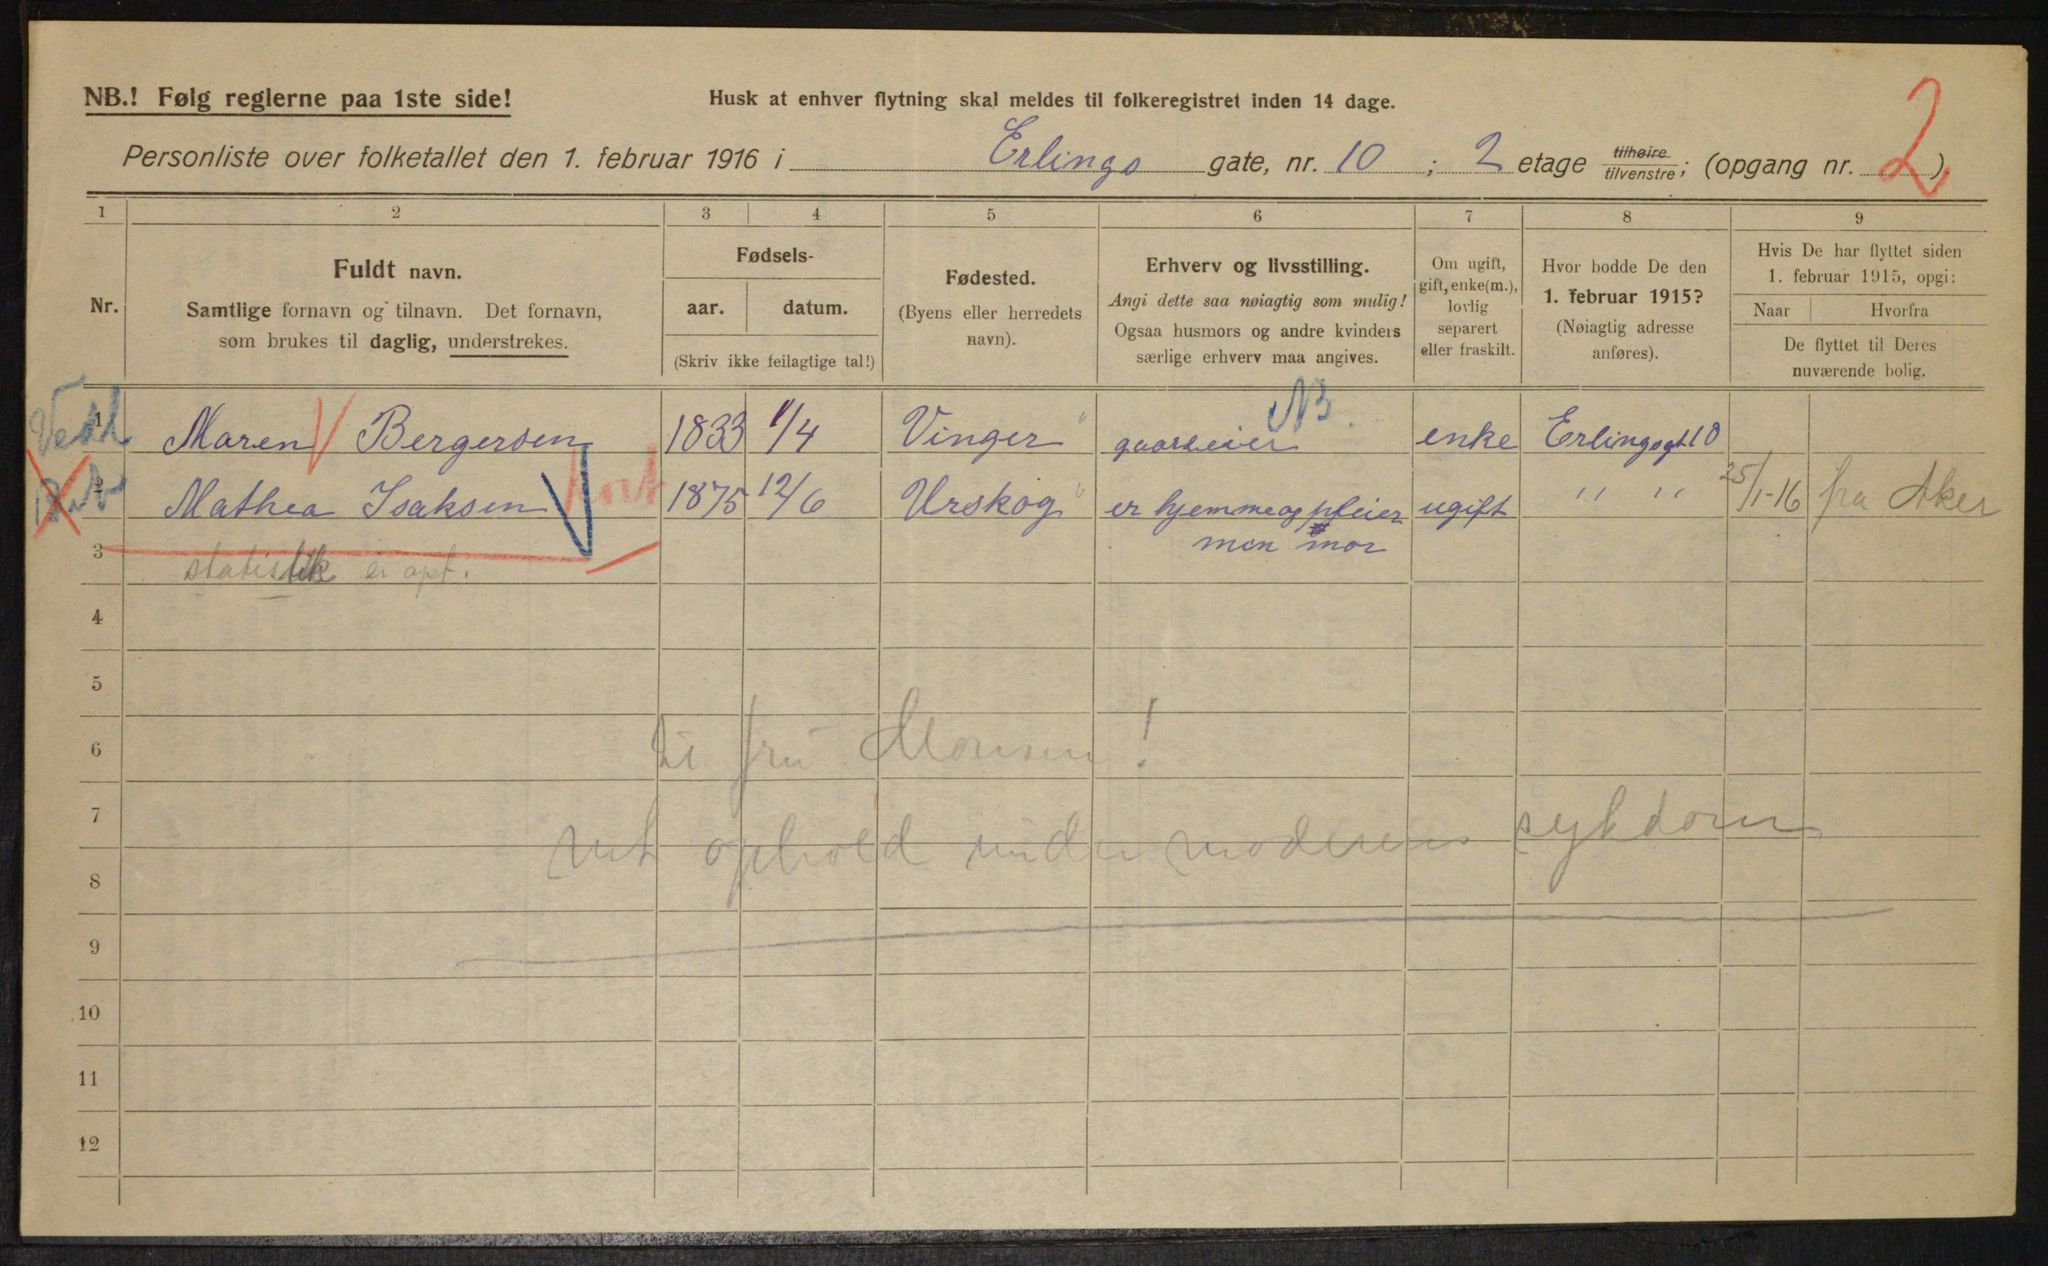 NB.! Følg reglerne paa 1ste side!
Husk at enhver flytning skal meldes til folkeregistret inden 14 dage.
Personliste over folketallet den 1. februar 1916 i Erlings gate, nr. 10 ; 2 etage tilhøire/tilvenstre; (opgang nr. ) 2
1 2 3 4 5 6 7 8 9
Nr.
Fuldt navn.
Samtlige fornavn og tilnavn. Det fornavn,
som brukes til daglig, understrekes.
Fødsels-
aar. datum.
(Skriv ikke feilagtige tal!)
Fødested.
(Byens eller herredets
navn).
Erhverv og livsstilling.
Angi dette saa nøiagtig som mulig!
Ogsaa husmors og andre kvinders
særlige erhverv maa angives.
Om ugift,
gift, enke(m.),
lovlig
separert
eller fraskilt.
Hvor bodde De den
1. februar 1915?
(Nøiagtig adresse
anføres).
Hvis De har flyttet siden
1. februar 1915, opgi:
Naar Hvorfra
De flyttet til Deres
nuværende bolig.
NB.
1 Maren Bergersen 1833 1/4 Vinger gaardeier enke Erlingsgt 10
2 Mathea Isaksen 1875 12/6 Urskog er hjemme og pleier ugift " " 25/1-16 fra Aker
min mor
3 statistik ei opt.
4
5
6 fru Monsen!
7 ophold under moderens sykdom
8
9
10
11
12